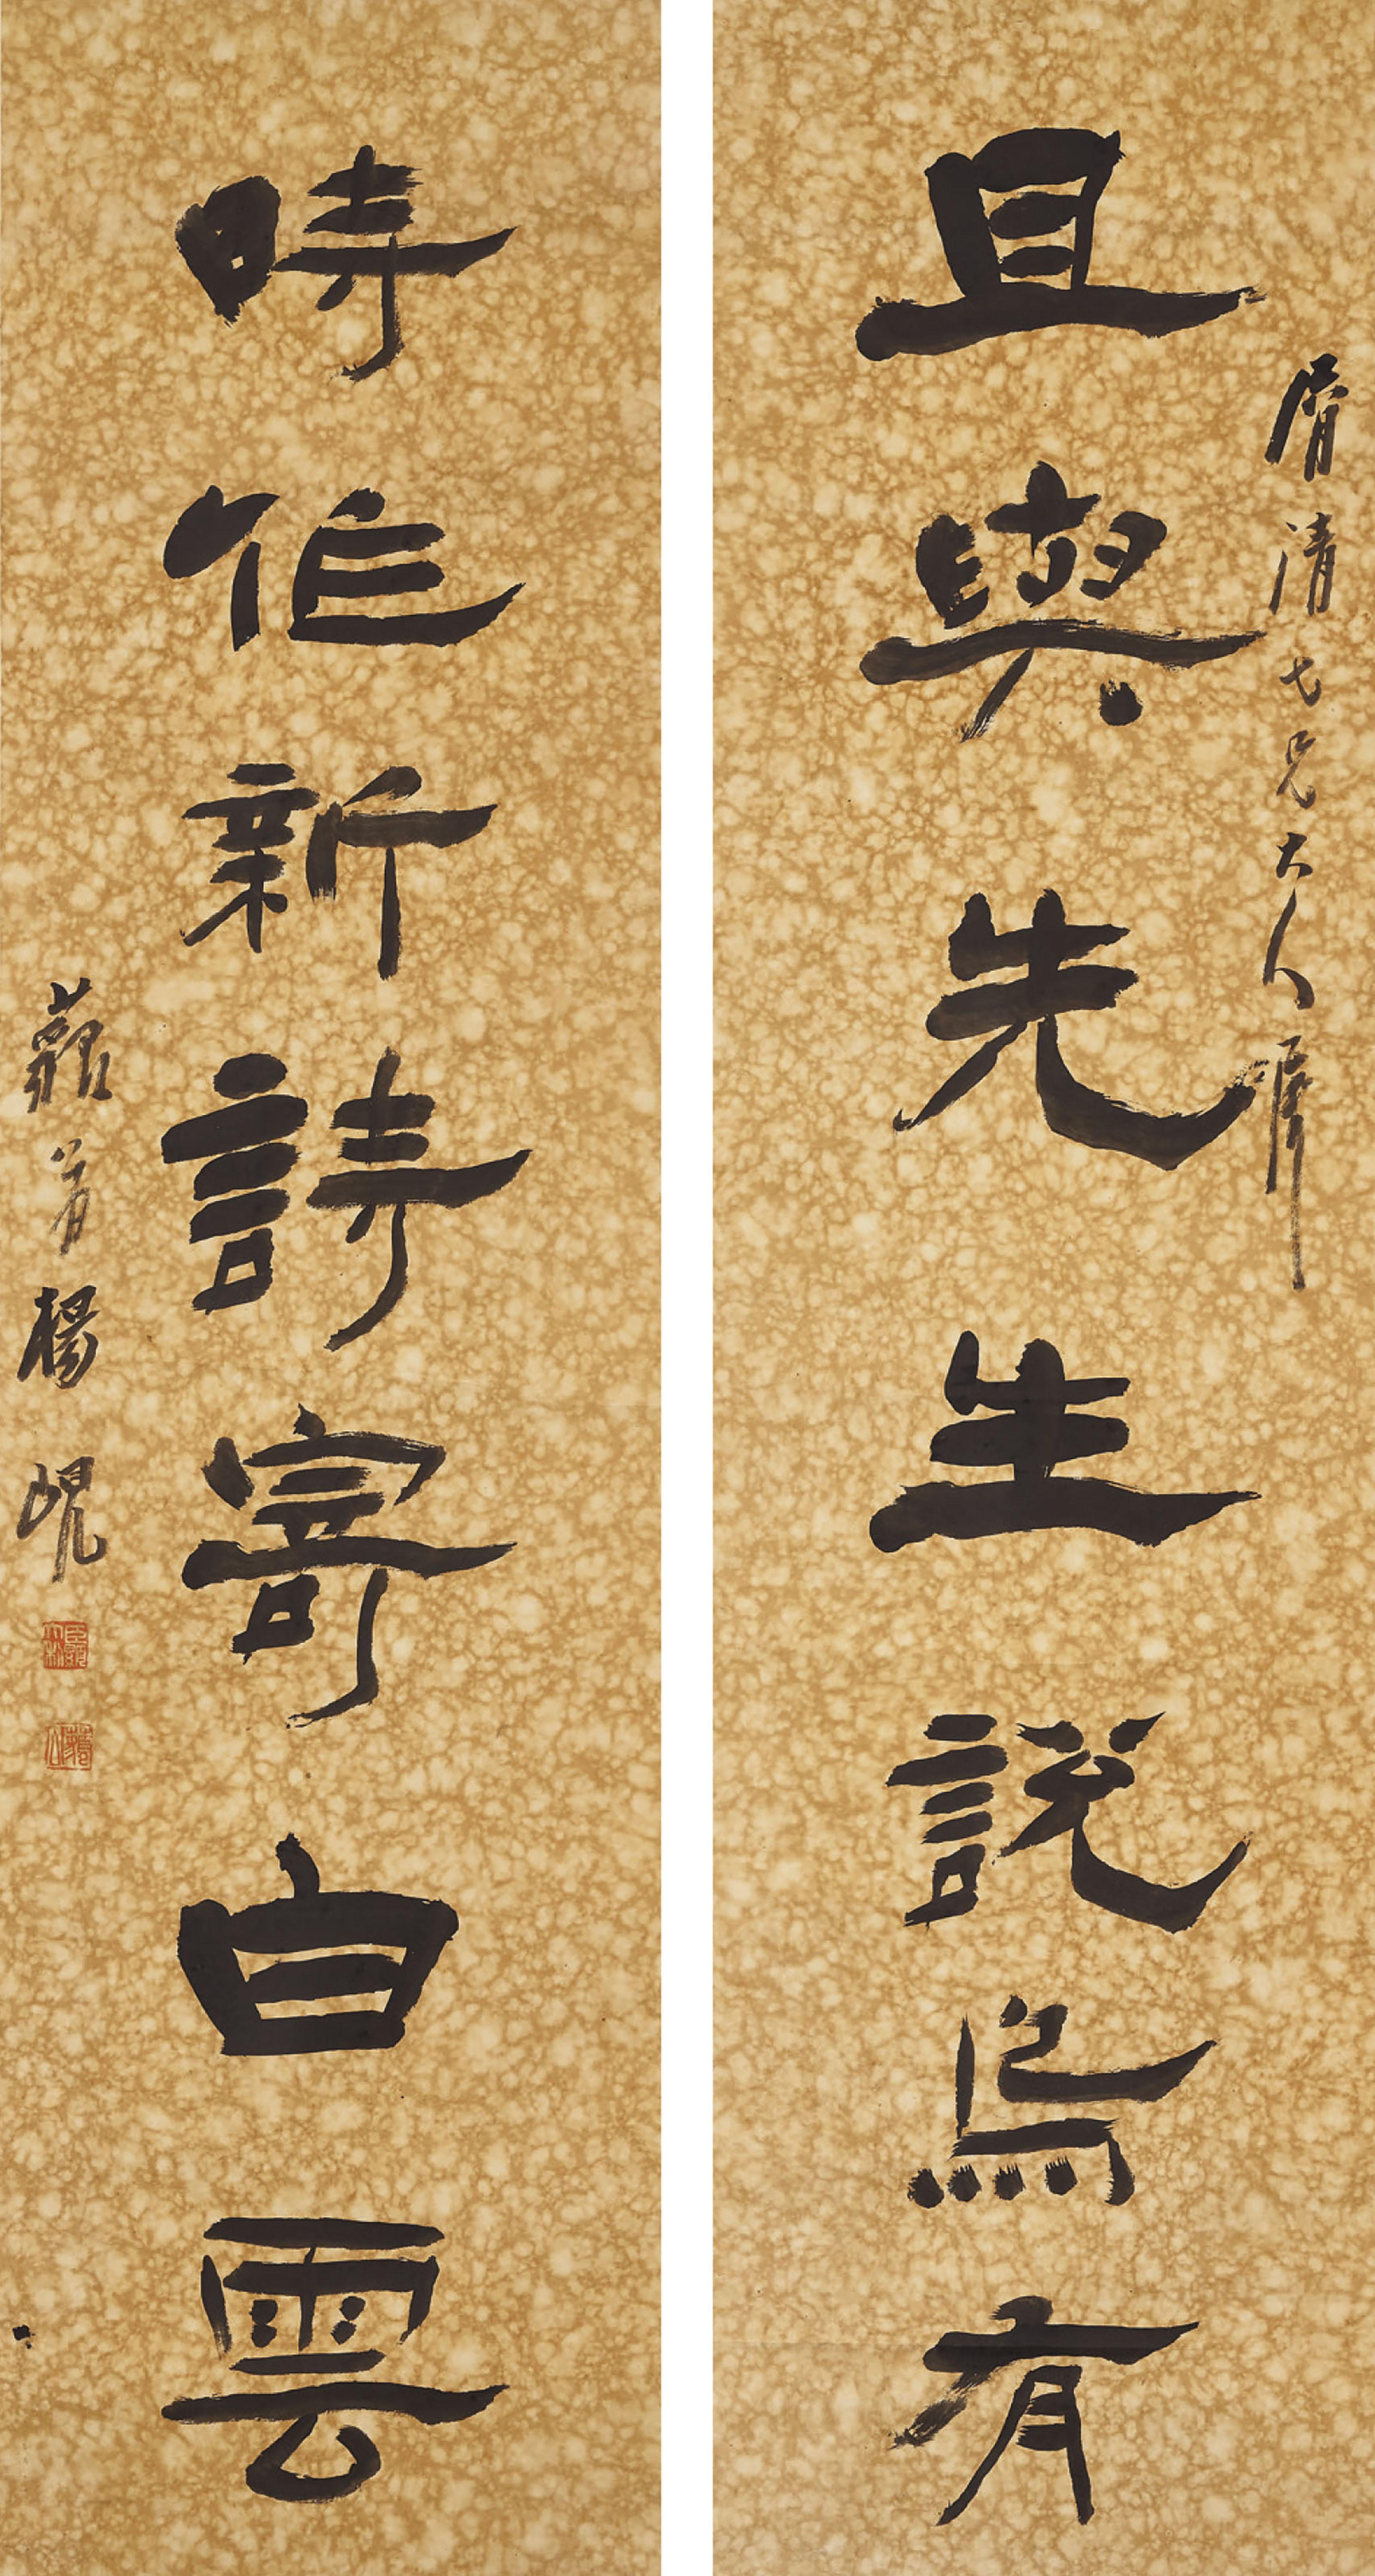 且與先生說烏有
清七兄大人屬
時作新詩寄白雲
藐翁楊峴